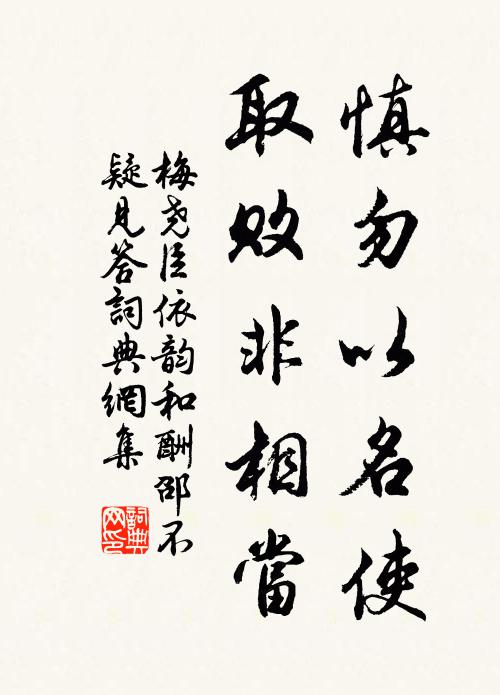 慎勿以名使
取败非相當
梅尧臣依韵和酬邵不
疑見答詞典網集
詞典
网印